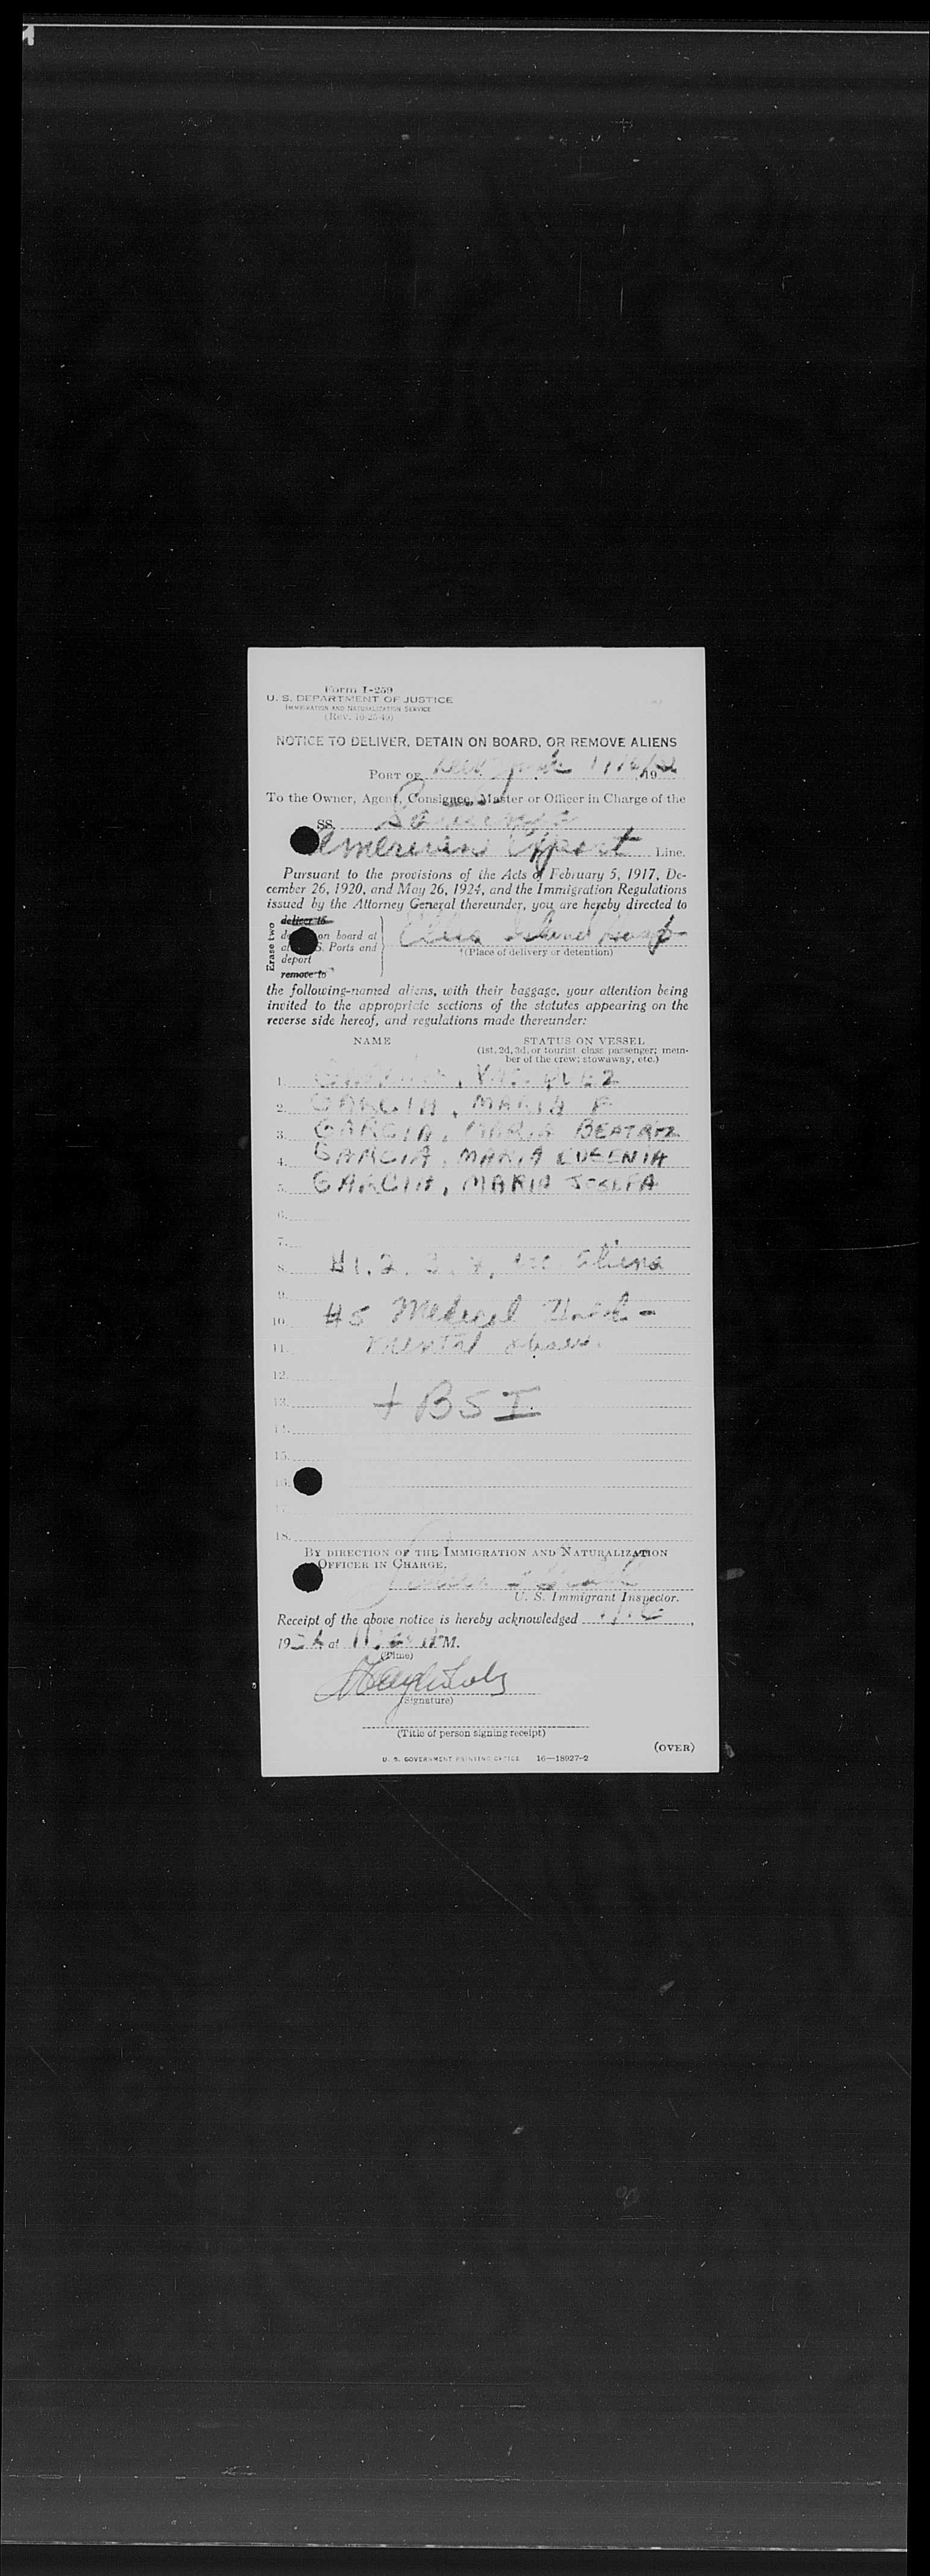 Form I-259
U. S. DEPARTMENT OF JUSTICE
IMMIGRATION AND NATURALIZATION SERVICE
(Rev. 10-25-49)
NOTICE TO DELIVER, DETAIN ON BOARD, OR REMOVE ALIENS
PORT OF New York 19
To the Owner, Agent, Consignee, Master or Officer in Charge of the
SS.
American Export Line.
Pursuant to the provisions of the Acts of February 5, 1917, De-
cember 26, 1920, and May 26, 1924, and the Immigration Regulations
issued by the Attorney General thereunder, you are hereby directed to
Erase two
deliver to
on board at
Ports and
deport
remove to
Ellis Island Hosp
†(Place of delivery or detention)
the following-named aliens, with their baggage, your attention being
invited to the appropriate sections of the statutes appearing on the
reverse side hereof, and regulations made thereunder:
NAME STATUS ON VESSEL
(1st, 2d, 3d, or tourist class passenger; mem-
ber of the crew; stowaway, etc.)
1.
2. GARCIA, MARIA F
3. GARCIA, MARIA BEATRIZ
4. GARCIA, MARIA EUGENIA
5. GARCIA, MARIA JOSEFA
6.
7.
8. #1. 2. 3. 4. aliens
9.
10. #5 Medical Hold -
11. mental obser.
12.
13. + BSI
14.
15.
16.
17.
18.
BY DIRECTION OF THE IMMIGRATION AND NATURALIZATION
OFFICER IN CHARGE.
U. S. Immigrant Inspector.
Receipt of the above notice is hereby acknowledged
19 at M.
(Time)
(Signature)
(Title of person signing receipt)
(OVER)
U. S. GOVERNMENT PRINTING OFFICE 16—18927-2